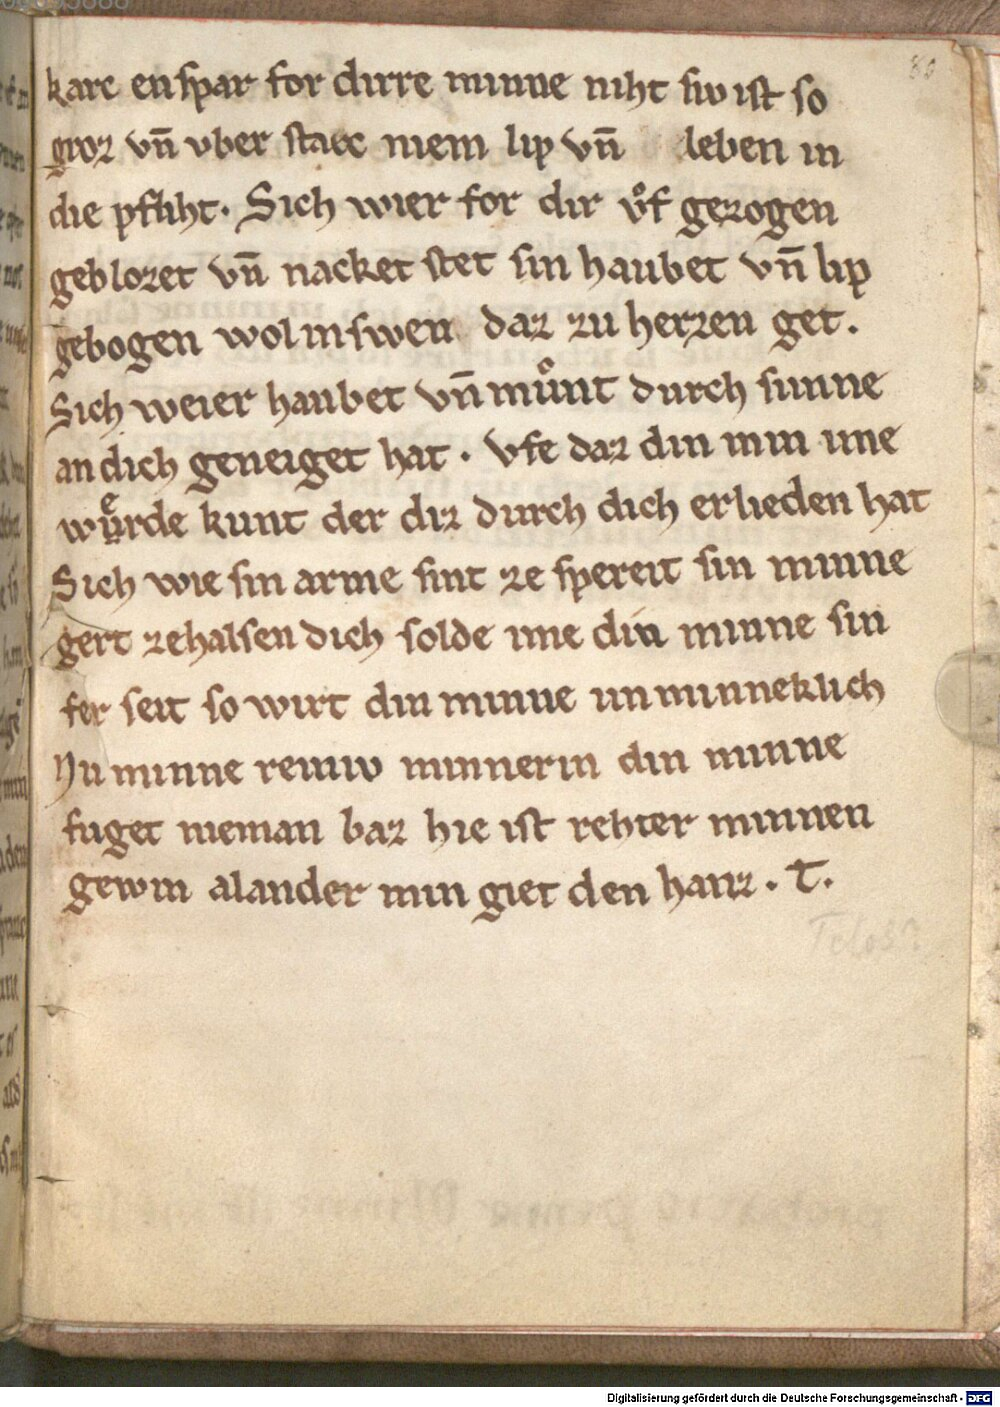 80
karc en spar for dirre minne niht siv ist so
groz vn̄ vber starc niem lip vn̄ leben in
die pfliht. Sich wier for dir vͦf gezogen
geblozet vn̄ nacket stet sin haubet vn̄ lip
gebogen wol in swen daz zu herzen get.
Sich weier haubet vn̄ muͦnt durch sunne
an dich geneiget hat. vfe daz din min ime
wuͤrde kunt der diz durch dich erlieden hat
Sich wie sin arme sint ze spereit sin minne
gert ze halsen dich solde ime din minne sin
fer seit so wirt din minne unminneklich
Nu minne reiniv minnerin din minne
fuget nieman baz hie ist rehter minnen
gewin alander min giet den hanz. T.
Telos?
Digitalisierung gefördert durch die Deutsche Forschungsgemeinschaft - DFG